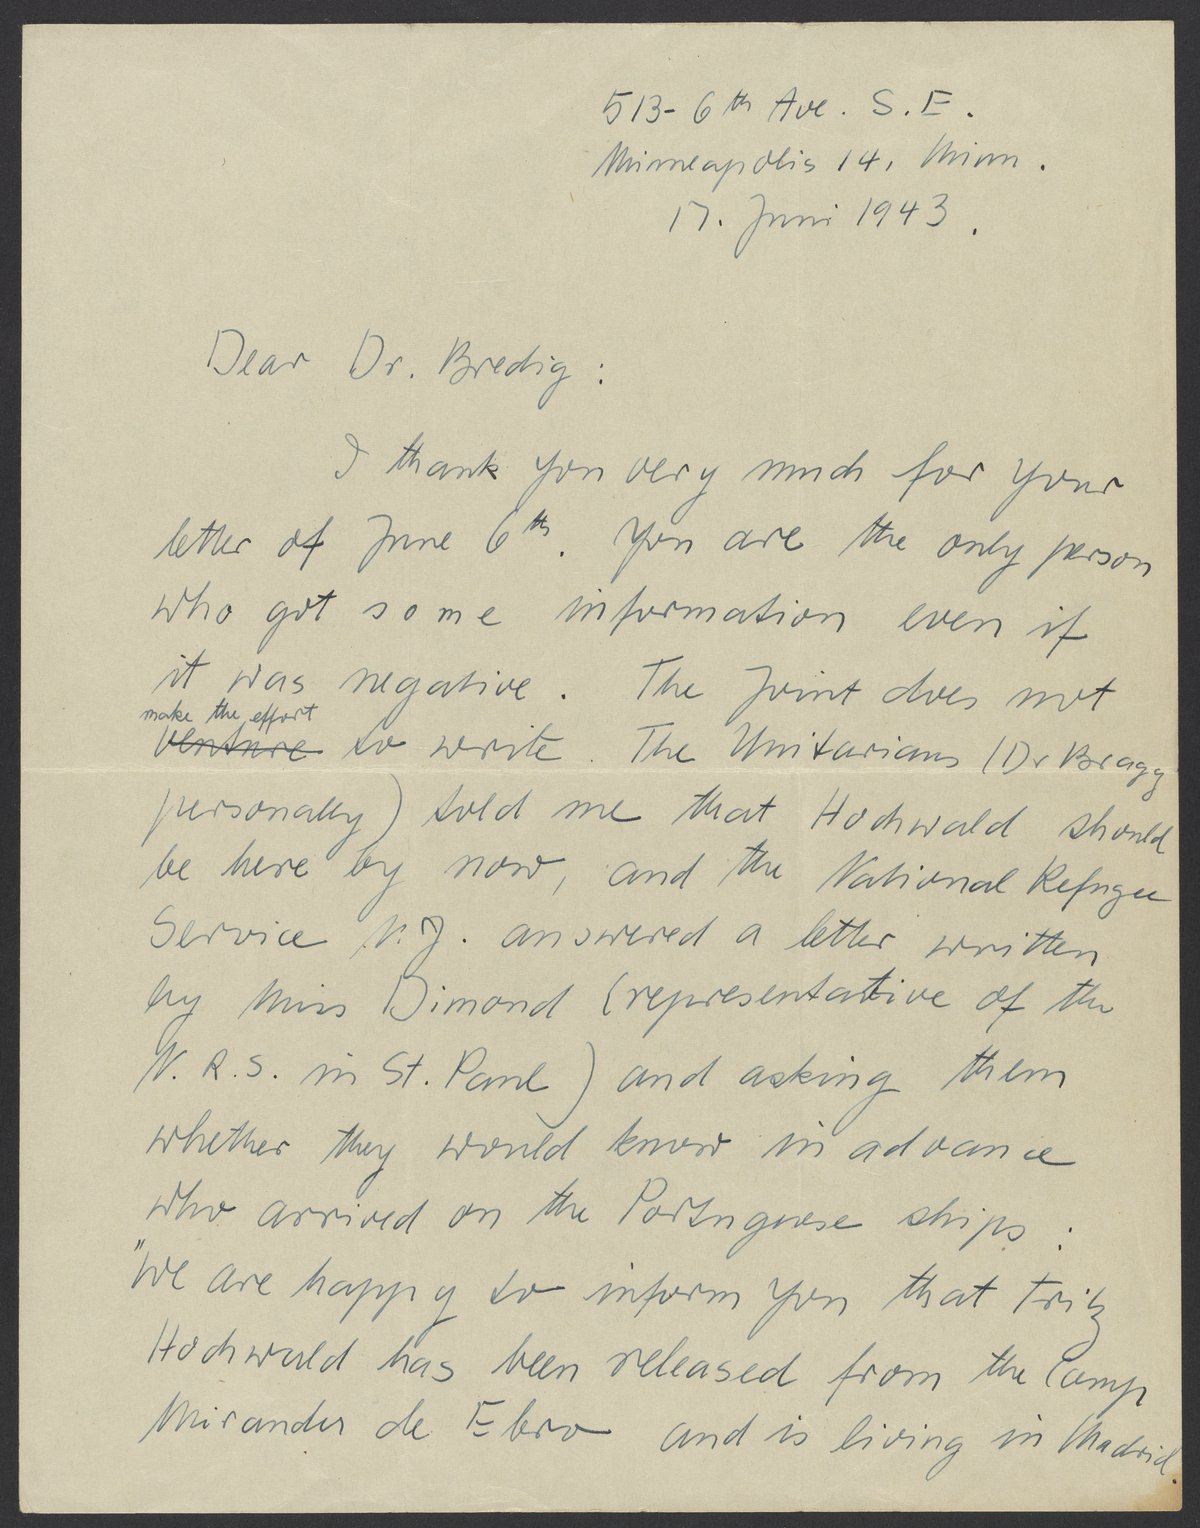 513- 6th Ave. S.E.
Minneapolis 14, Minn.
17. Juni 1943.
Dear Dr. Bredig:
I thank you very much for your
letter of June 6th. You are the only person
who got some information even if
it was negative. The Joint does not
make the effort
venture to write. The Unitarians (Dr Bragg
personally) told me that Hochwald should
be here by now, and the National Refugee
Service N.J. answered a letter written
by Miss Dimond (representative of the
N.R.S. in St. Paul) and asking them
whether they would know in advance
who arrived on the Portuguese ships:
"We are happy to inform you that Fritz
Hochwald has been released from the Camp
Miranda de Ebro and is living in Madrid.